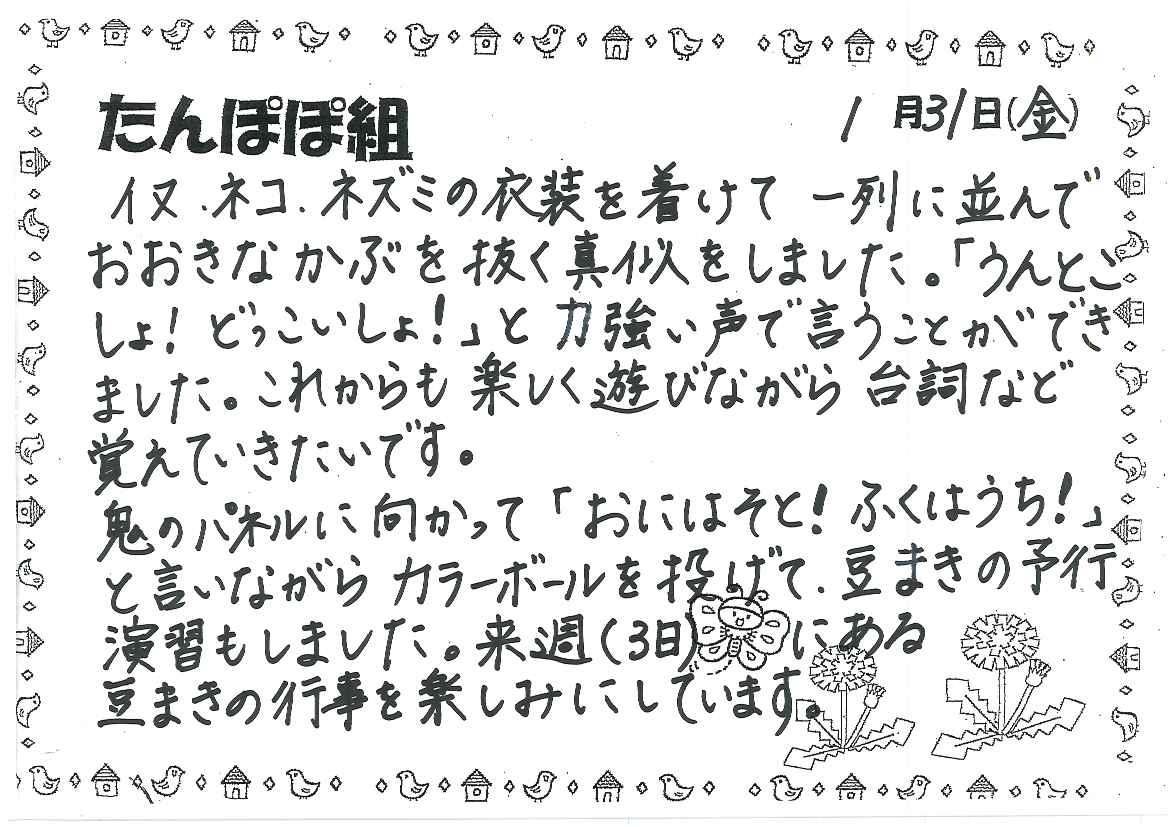 たんぽぽ組
1月31日(金)
イヌ、ネコ、ネズミの衣装を着けて一列に並んで
おおきなかぶを抜く真似をしました。「うんとこ
しょ!どっこいしょ!」と力強い声で言うことができ
ました。これからも楽しく遊びながら台詞など
覚えていきたいです。
鬼のパネルに向かって「おにはそと!ふくはうち!」
と言いながらカラーボールを投げて、豆まきの予行
演習もしました。来週(3日)にある
豆まきの行事を楽しみにしています。